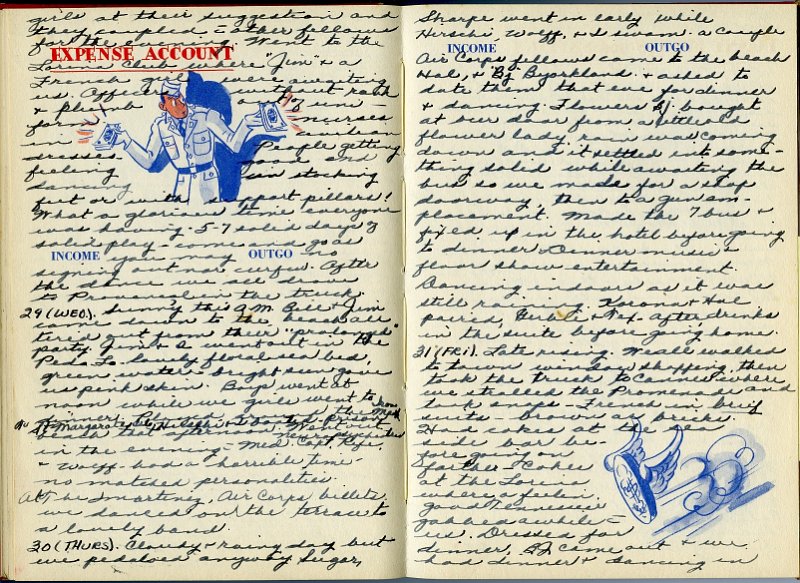 girls at their suggestion and
they coupled - other fellows
for the evening. Went to the
EXPENSE ACCOUNT
Lorina Club where "Jim" & a
French girl were awaiting
us. Officers without rank
& plenty of uni-
forms - nurses
in even
dresses. People getting
feeling good and
dancing in stocking
feet or with support pillars!
What a glorious time everyone
was having - 5-7 solid days of
solid play - come and go as
INCOME you may - no OUTGO
signing out nor curfew. After
the dance we all drove
to Provencal in the truck.
29 (WED). Sunny this A.M. Bill & Jim
came down to the
tired out from their "prolonged"
party. Jim & I went out in the
Pedalo lovely floral sea bed,
green water & bright sun gave
us pink skin. Boys went at
noon while we girls went to
dinner.
beach that afternoon. Went out
in the evening - Med. Capt. Rife,
& Wolff - had a horrible time -
no matched personalities.
At the Martinez, Air Corps billets,
we danced on the terrace to
a lovely band.
30 (THURS). Cloudy & rainy day but
we pedaloed anyway. Sugar,
Sharpe went in early while
Herschi, Wolff, & I swam. A couple
INCOME OUTGO
Air Corps fellows came to the beach
Hal, & Bj Bjorkland & asked to
date them that eve for dinner
& dancing. Flowers Bj. bought
at our door from a little old
flower lady. rain was coming
down and it settled into some-
thing solid while awaiting the
bus so we made for a shop
doorway, then to a gun em-
placement. Made the 7 bus &
fixed up in the hotel before going
to dinner. Dinner music &
floor show entertainment.
Dancing indoors as it was
still raining. & Hal
paired, & after drinks
in the suite before going home.
31 (FRI). Late rising. We all walked
to town window shopping, then
took the truck to Cannes where
we strolled the Promenade and
took snaps - French in brief
suits - brown as bricks.
Had cakes at the sea
side bar be-
fore going on
farther. Cokes
at the Lorin
where a feelin
good Tennessee
gabbed awhile -
us. Dressed for
dinner, BJ came out & we
had dinner & dancing in